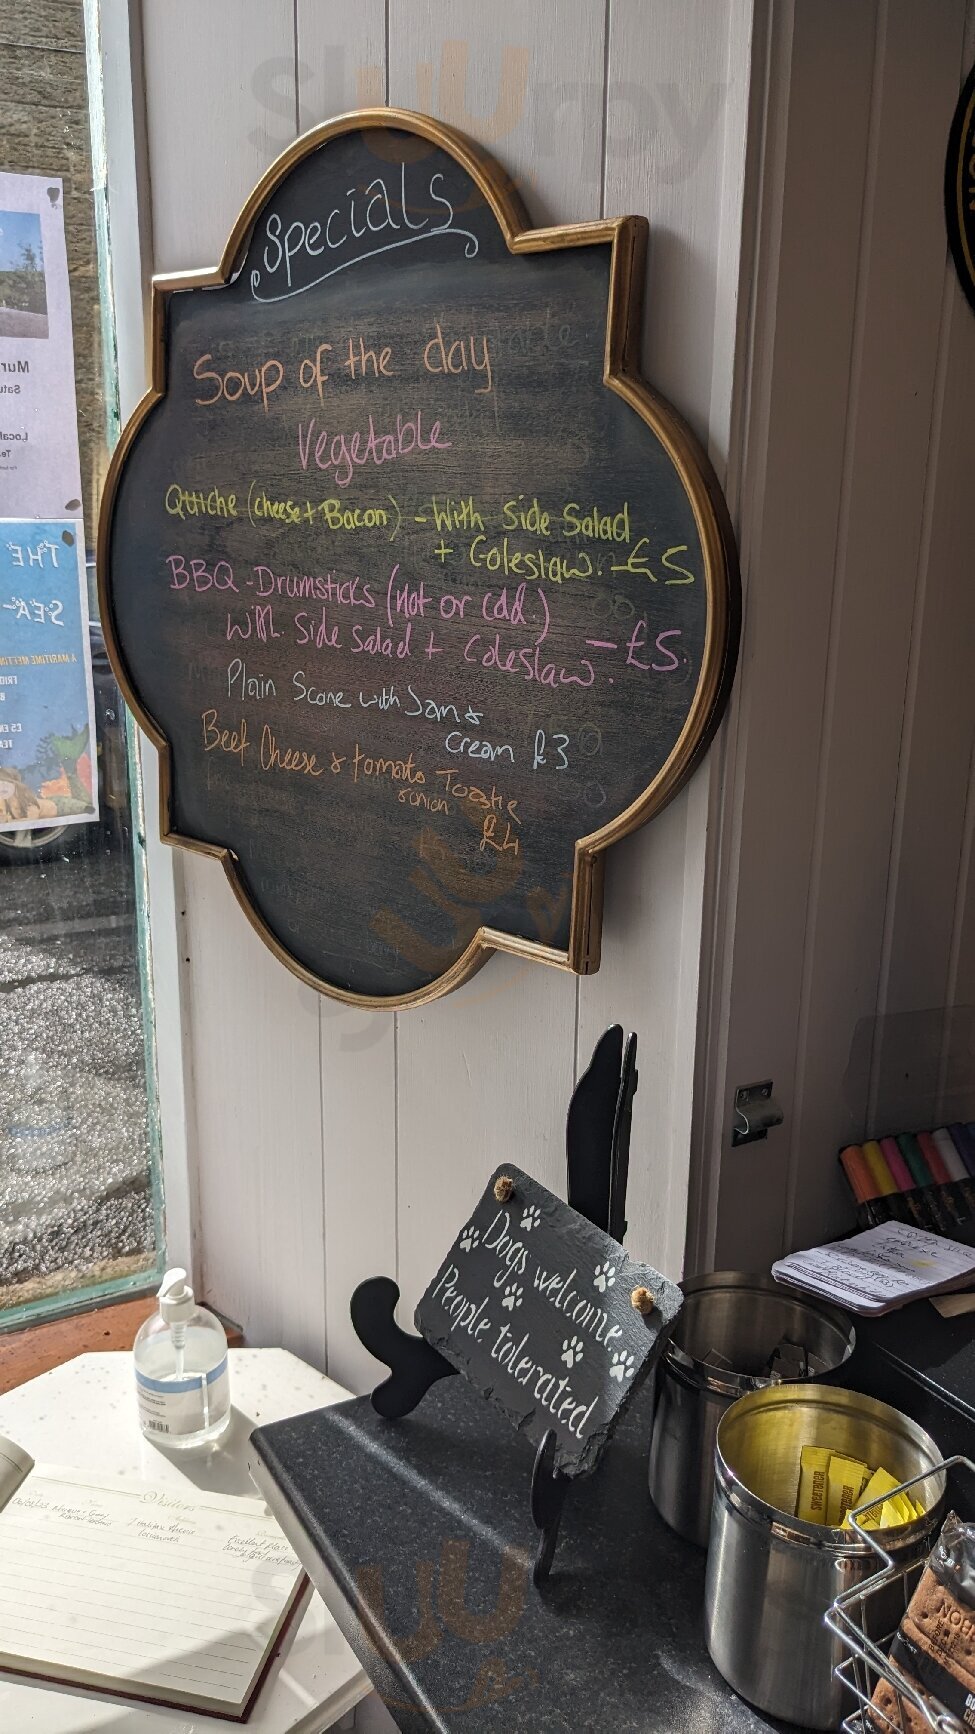 Specials
Soup of the day
Vegetable
Quiche (cheese + Bacon) - With Side Salad
+ Coleslaw. - £5
BBQ - Drumsticks (Hot or Cold.)
With Side Salad + Coleslaw. - £5.
Plain Scone with Jam &
Cream £3
Beef Cheese & tomato Toastie
& onion
£4
Dogs welcome
People tolerated
THE
SEA-
A MARITIME MEETING
Visitors
SWEETENER
SWEETENER
NOR